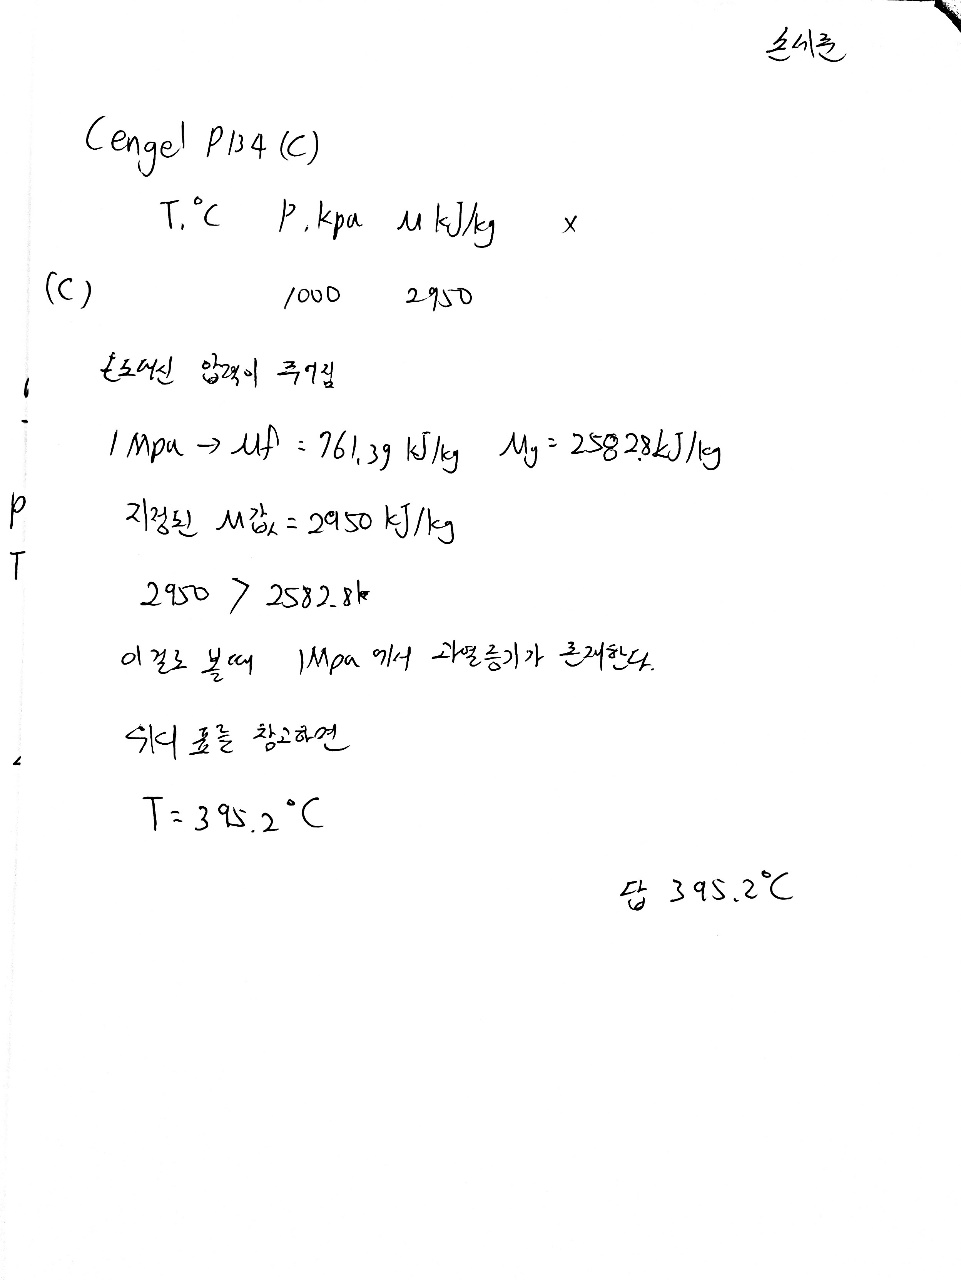 손세준
Cengel P134 (C)
T.°C P.kpa u kJ/kg x
(C) 1000 2950
온도대신 압력이 주어짐
1 Mpa → uf = 761.39 kJ/kg ug = 2582.8kJ/kg
P
지정된 u값 = 2950 kJ/kg
T
2950 > 2582.8k
이걸로 볼때 1Mpa 에서 과열증기가 존재한다.
위의 표를 참고하면
T = 395.2°C
답 395.2°C